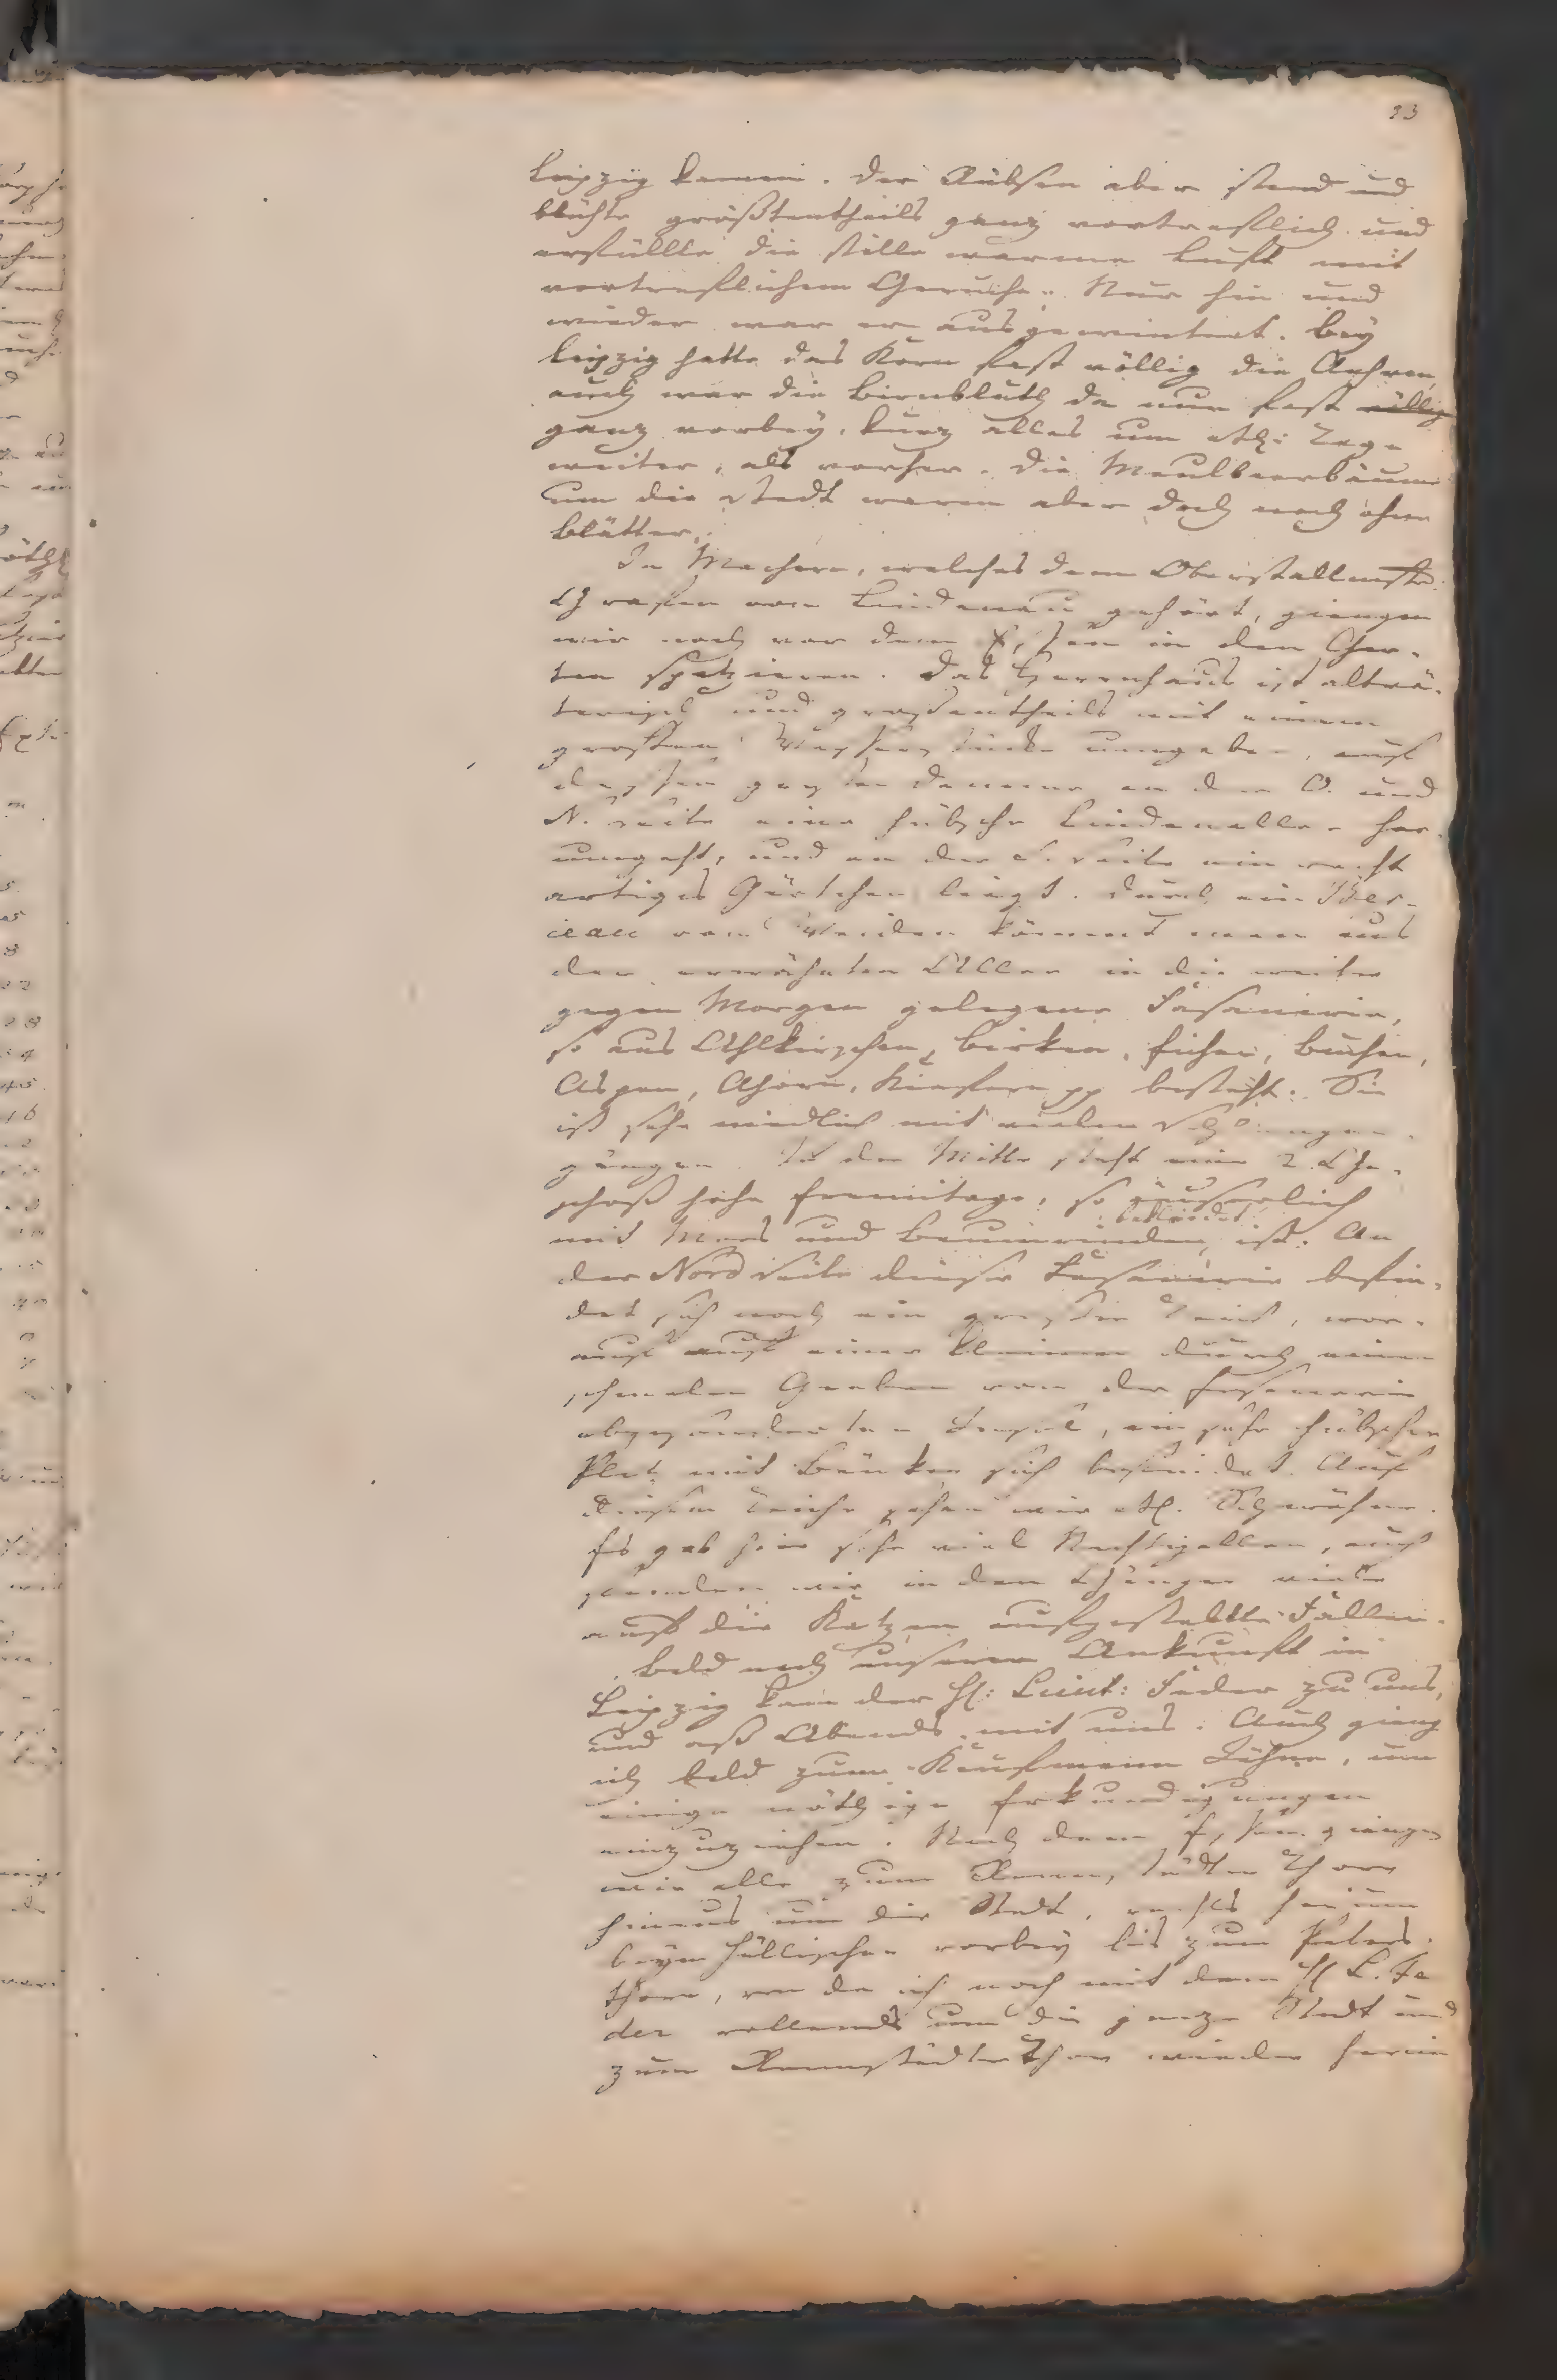 23
Leipzig kamen. Der Rübsen aber stand und
blühte größtentheils ganz vortreflich und
erfüllte die stille warme Luft mit
vortreflichem Geruche. Nur hin und
wieder war er ausgewintert. Bey
Leipzig hatte das Korn fast völlig die Aehren,
auch war die Birnblüth da nun fast völlig
ganz vorbey, kurz alles um etl: Tage
weiter, als vorher. Die Maulbeerbäume
um die Stadt waren aber doch noch ohne
Blätter.
In Machern, welches dem Oberstallmstr.
Grafen von Lindenau gehört, giengen
wir noch vor dem Essen in den Gar-
ten spatzieren. Das Herrenhaus ist altvä-
terisch und grosentheils mit einem
grosen umgeben, auf
dessen Damme an der O. und
N. Seite eine hübsche Lindenallee her-
umgeht, und an der S. Seite ein recht
artiges Gärtchen liegt. Durch ein Ber-
ceau von Weiden kömmt man aus
der erwähnten Allee in die weiter
gegen Morgen gelegene Fasanerie,
so aus Ahlkirschen, Birken, Eichen, Buchen,
Aspen, Ahorn, Kiefern pp besteht. Sie
ist sehr niedlich mit vielen Schlangen-
gängen. In der Mitte steht eine 2 Ge-
schoß hohe Eremitage, so äuserlich
mit Moos und Baumrinden bekleidet ist. An
der Nord Seite dieser Fasanerie befin-
det sich noch ein groser Teich, wor-
auf auf einer kleinen durch einen
schmalen Graben von der Fasanerie
abgesonderten Insel, ein sehr hübscher
Platz mit Bänken sich befindet. Auf
diesem Teiche sahen wir etl. Schwähne.
Es gab hier sehr viel Nachtigallen, auch
fanden wir in den Gängen viele
auf die Katzen aufgestellte Fallen.
Bald nach unserer Ankunft in
Leipzig kam der H: Lieut: Feder zu uns,
und aß Abends mit uns. Auch gieng
ich bald zum Kaufmann Löhne, um
einige nöthige Erkundigungen
einzuziehen. Nach dem Essen giengen
wir alle zum Rannstädter Thore
hinaus um die Stadt, rechts herum
beym Hällischen vorbey bis zum Peters-
thore, von da ich noch mit dem H L. Fe
der vollends um die ganze Stadt und
zum Rannstädter Thor wieder herein